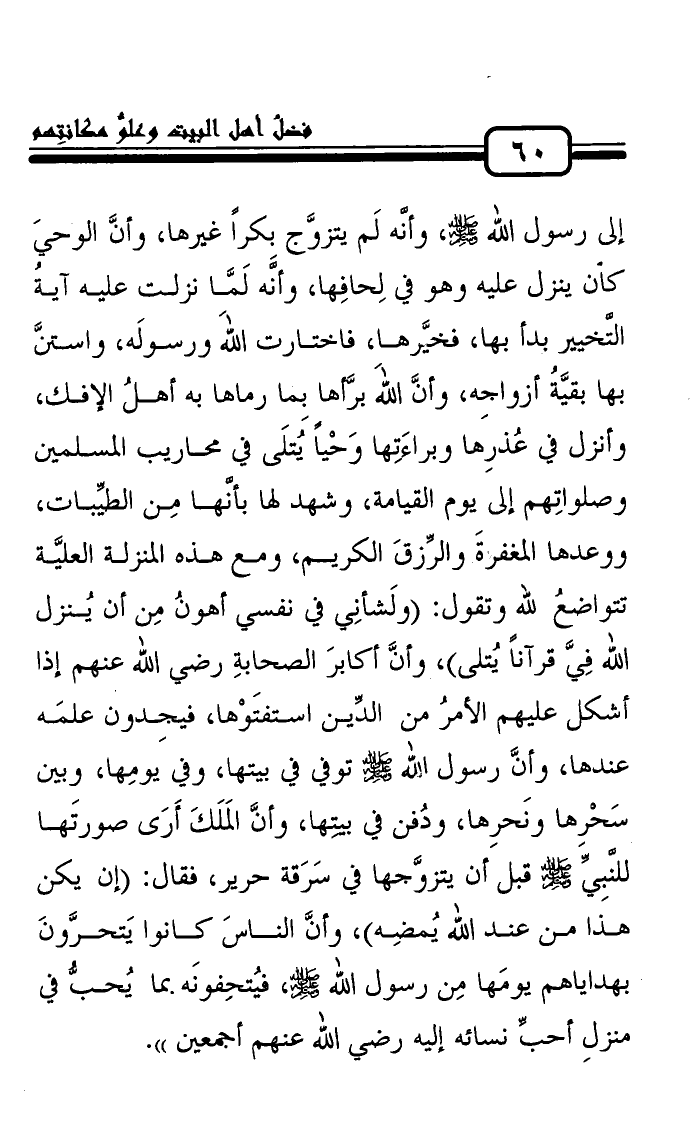 فضلُ أهل البيت وعلوُّ مكانتِهم
٦٠
إلى رسول الله ﷺ، وأنَّه لَم يتزوَّج بكراً غيرها، وأنَّ الوحيَ
كان ينزل عليه وهو في لِحافِها، وأنَّه لَمَّا نزلت عليه آيةُ
التَّخيير بدأ بها، فخيَّرها، فاختارت اللهَ ورسولَه، واستنَّ
بها بقيَّةُ أزواجِه، وأنَّ اللهَ برَّأها بِما رماها به أهلُ الإفك،
وأنزل في عُذرِها وبراءَتِها وَحْياً يُتلَى في محاريب المسلمين
وصلواتِهم إلى يوم القيامة، وشهد لها بأنَّها مِن الطيِّبات،
ووعدها المغفرةَ والرِّزقَ الكريم، ومع هذه المنزلة العليَّة
تتواضعُ لله وتقول: (ولَشأنِي في نفسي أهونُ مِن أن يُنزل
الله فِيَّ قرآناً يُتلى)، وأنَّ أكابرَ الصحابةِ رضي الله عنهم إذا
أشكل عليهم الأمرُ من الدِّين استفتَوْها، فيجِدون علمَه
عندها، وأنَّ رسول الله ﷺ توفي في بيتها، وفي يومِها، وبين
سَحْرِها ونَحرِها، ودُفن في بيتِها، وأنَّ المَلَكَ أَرَى صورتَها
للنَّبِيِّ ﷺ قبل أن يتزوَّجها في سَرَقة حرير، فقال: (إن يكن
هذا من عند الله يُمضِه)، وأنَّ الناسَ كانوا يَتحرَّونَ
بهداياهم يومَها مِن رسول الله ﷺ، فيُتحِفونَه بما يُحبُّ في
منزلِ أحبِّ نسائه إليه رضي الله عنهم أجمعين )).